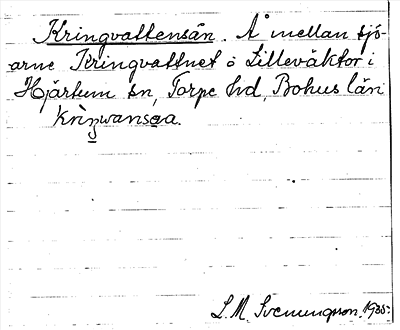 Kringvattensån. Å mellan sjö-
arne Kringvattnet o Lilleväktor i
Hjärtum sn, Torpe hd, Bohus län
L.M. Svenungsson. 1935.